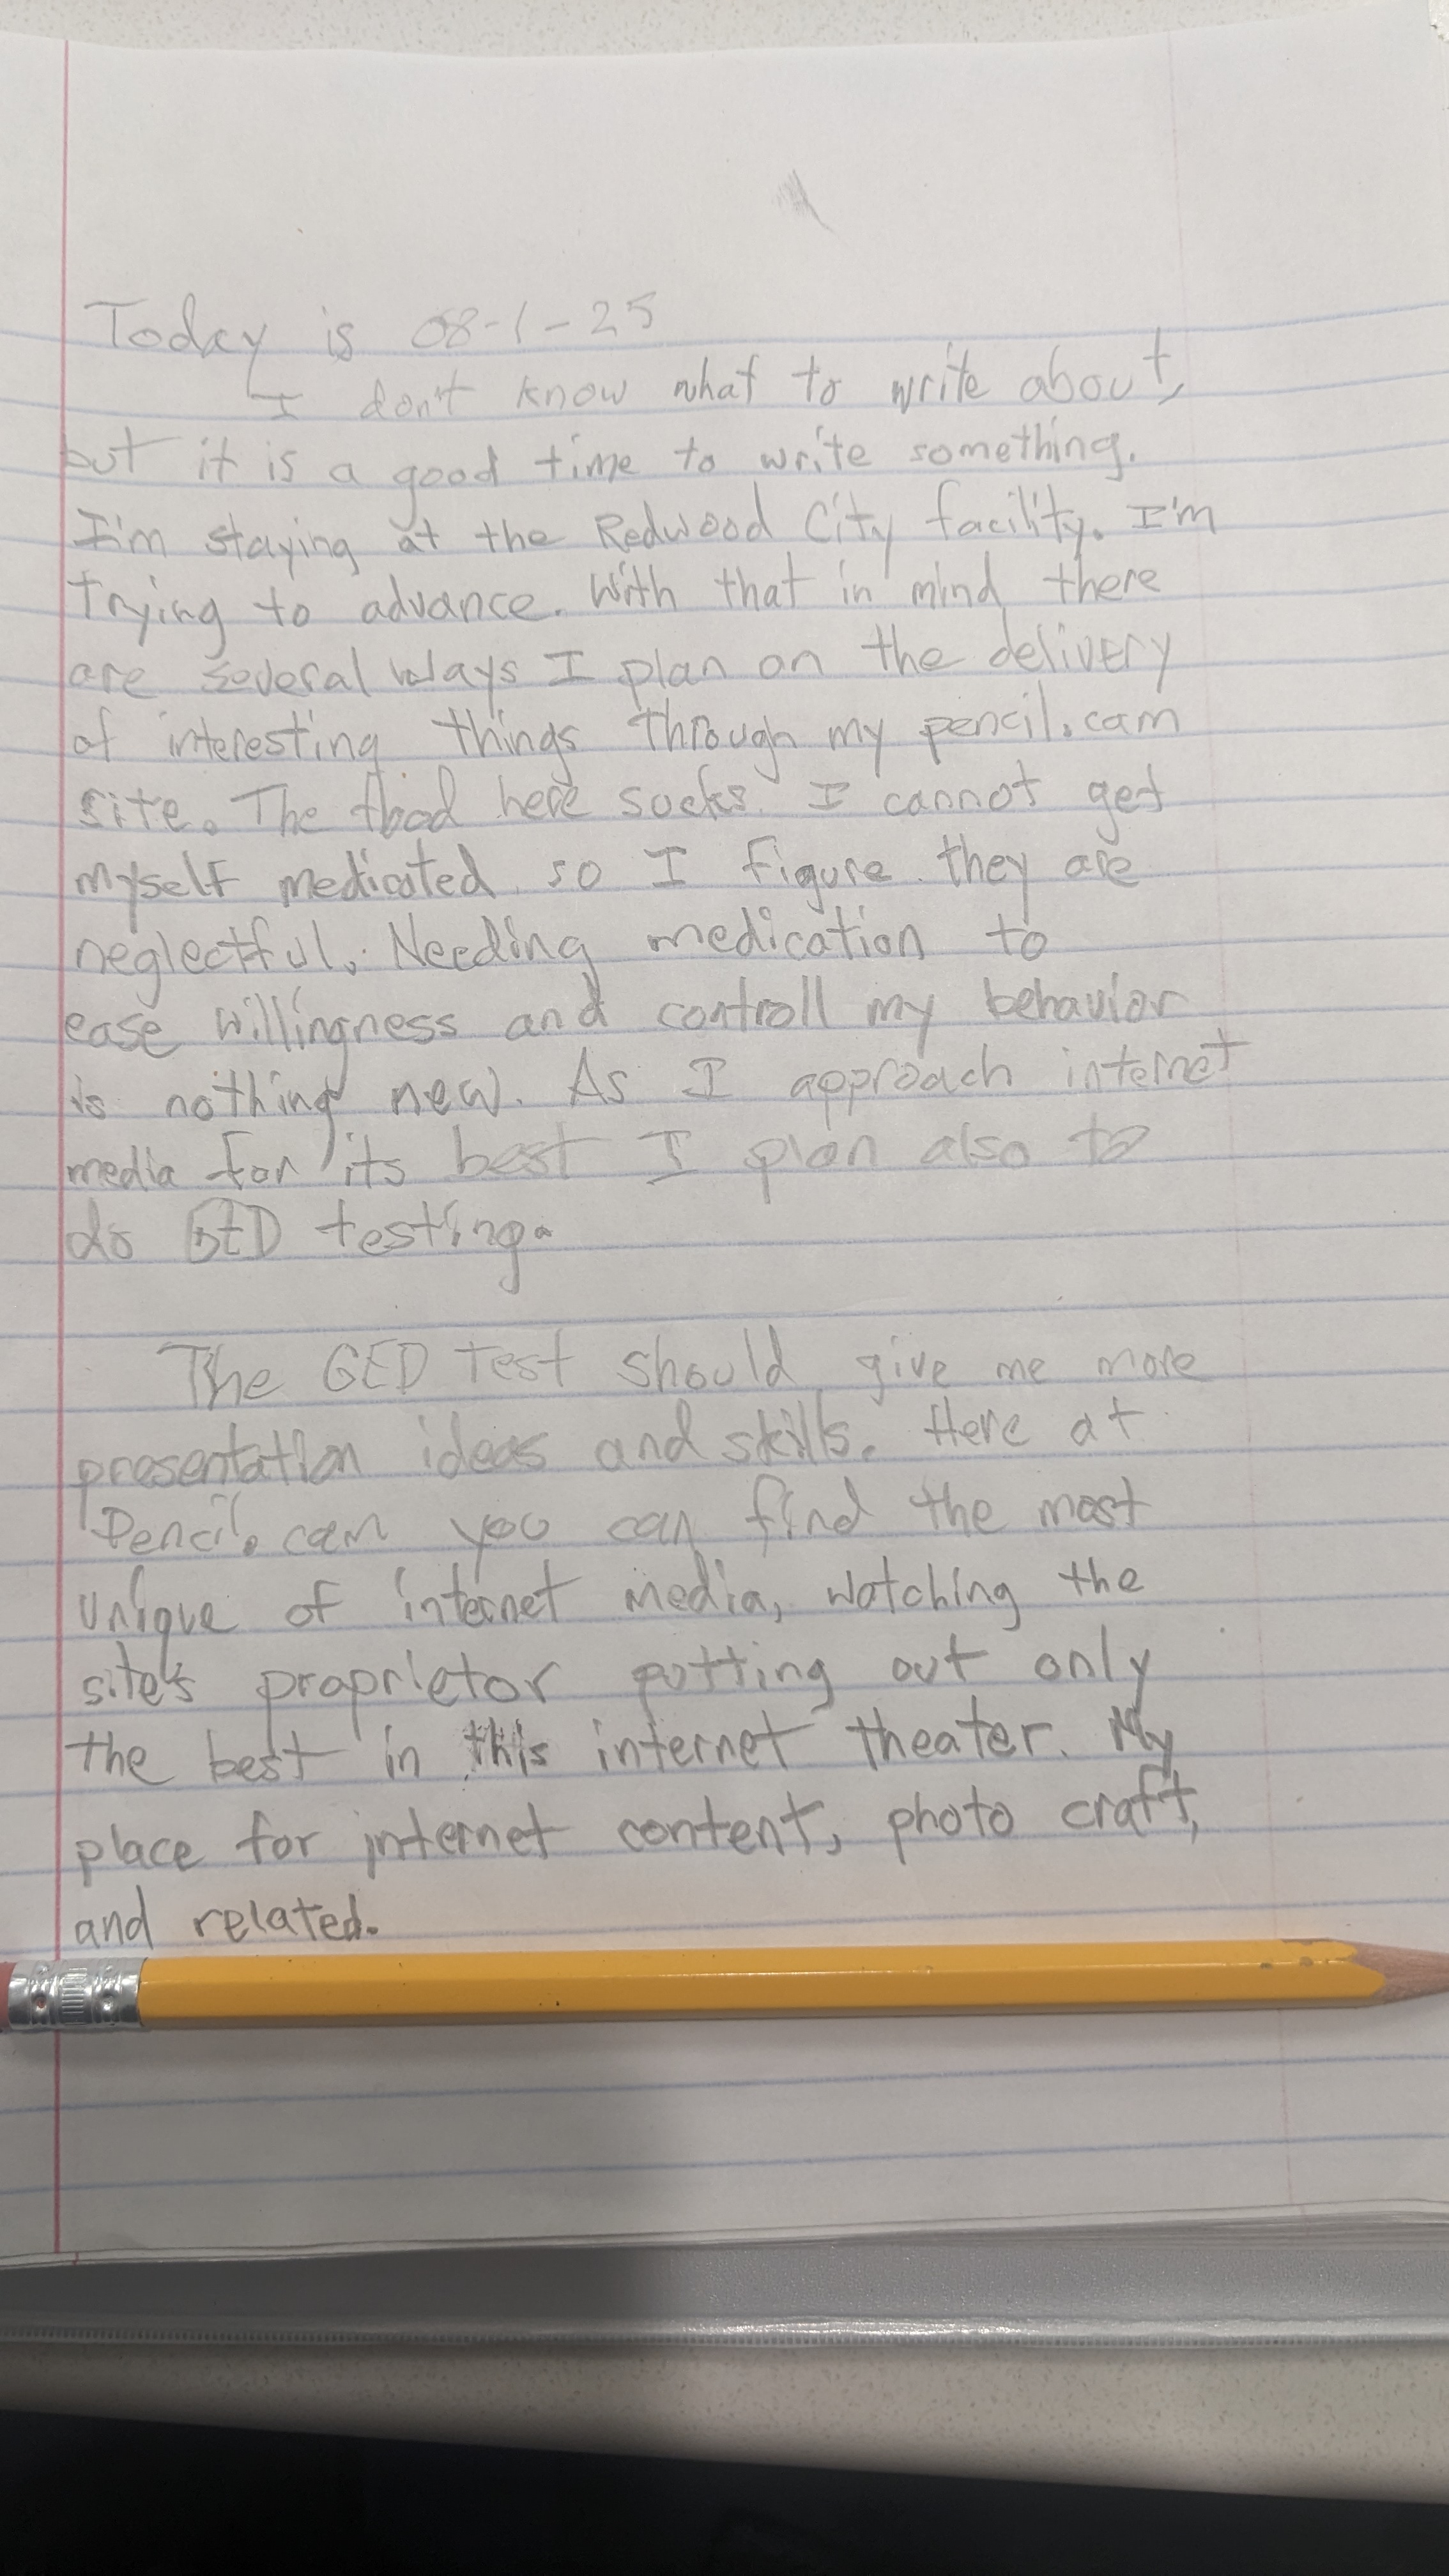 Today is 08-1-25
I don't know what to write about,
but it is a good time to write something.
I'm staying at the Redwood City facility. I'm
trying to advance. With that in mind there
are several ways I plan on the delivery
of interesting things through my pencil.cam
site. The food here sucks. I cannot get
myself medicated so I figure they are
neglectful. Needing medication to
ease willingness and controll my behavior
is nothing new. As I approach internet
media for its best I plan also to
do GED testing.
The GED test should give me more
presentation ideas and skills. Here at
Pencil.cam you can find the most
unique of internet media, watching the
site's proprietor putting out only
the best in this internet theater. My
place for internet content, photo craft,
and related.